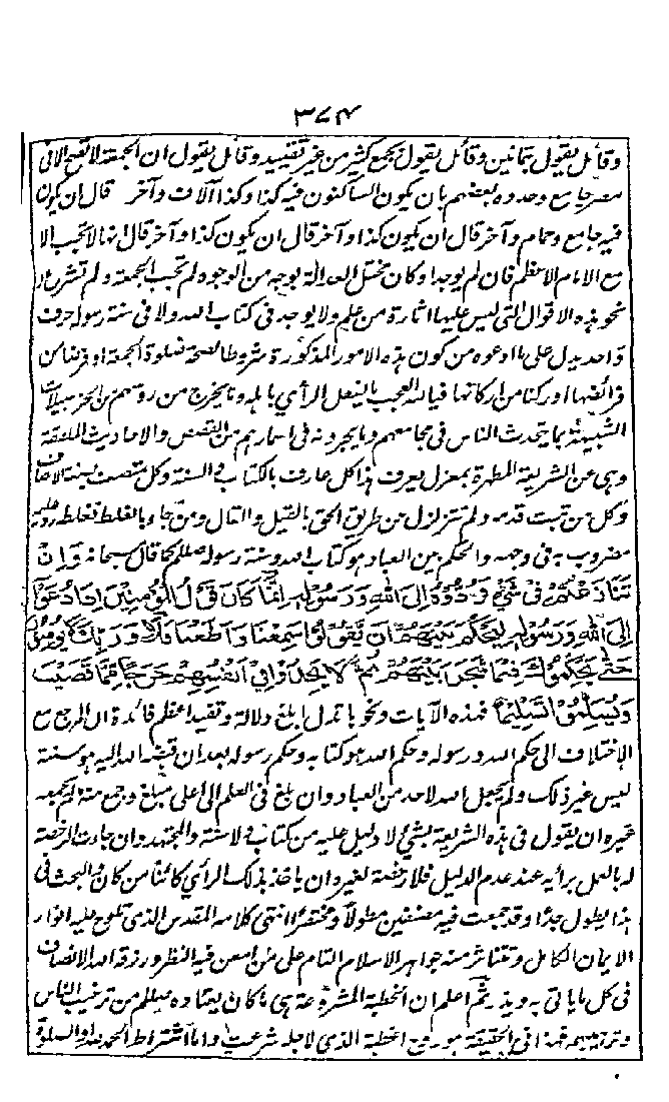 ٣٧٤
وقائل يقول بثمانين وقائل يقول بجمع كثير من غير تقييد وقائل يقول ان الجمعة لا تصح الا فى
مصر جامع وحدوه بعضهم بان يكون الساكنون فيه كذا وكذا آلاف وآخر قال ان يكون
فيه جامع وحمام وآخر قال ان يكون كذا وآخر قال ان يكون كذا وآخر قال انها لا تجب الا
مع الامام الاعظم فان لم يوجد او كان مختل العدالة بوجه من الوجوه لم تجب الجمعة ولم تشرع او
نحو هذه الاقوال التى ليس عليها اثارة من علم ولا يوجد فى كتاب الله ولا فى سنة رسوله حرف
واحد يدل على ما ادعوه من كون هذه الامور المذكورة شروطا لصحة صلوة الجمعة او فرضا من
فرائضها او ركنا من اركانها فيا لله العجب ما يفعل الرأي باهله وما يخرج من رؤسهم من الخزعبلات
الشبيهة بما يتحدث الناس فى مجامعهم وما يخبرونه فى اسمارهم من القصص والاحاديث الملفقة
وهى عن الشريعة المطهرة بمعزل يعرف هذا كل عارف بالكتاب والسنة وكل متصف بصفة الانصاف
وكل من ثبت قدمه ولم يتزلزل عن طريق الحق بالقيل والقال ومن جاء بالغلط فغلطه رد عليه
مضروب به فى وجهه والحكم بين العباد هو كتاب الله وسنة رسوله صلعم كما قال سبحانه وَاِنْ
تَنَازَعْتُمْ فِى شَيْءٍ فَرُدُّوهُ اِلَى اللهِ وَرَسُوْلِهِ اِنَّمَا كَانَ قَوْلَ الْمُؤْمِنِيْنَ اِذَا دُعُوْا
اِلَى اللهِ وَرَسُوْلِهِ لِيَحْكُمَ بَيْنَهُمْ اَنْ يَّقُوْلُوْا سَمِعْنَا وَاَطَعْنَا فَلَا وَرَبِّكَ لَا يُؤْمِنُوْنَ
حَتّٰى يُحَكِّمُوْكَ فِيْمَا شَجَرَ بَيْنَهُمْ ثُمَّ لَا يَجِدُوْا فِىْ اَنْفُسِهِمْ حَرَجًا مِّمَّا قَضَيْتَ
وَيُسَلِّمُوْا تَسْلِيْمًا فهذه الآيات ونحوها تدل ابلغ دلالة وتفيد اعظم فائدة ان المرجع مع
الاختلاف الى حكم الله ورسوله وحكم الله هو كتابه وحكم رسوله بعد ان قبضه الله اليه هو سنته
ليس غير ذلك ولم يجعل الله لاحد من العباد وان بلغ فى العلم الى اعلى مبلغ وجمع منه ما لم يجمعه
غيره ان يقول فى هذه الشريعة بشئ لا دليل عليه من كتاب ولا سنة والمجتهد وان جاءت الرخصة
له بالعمل برأيه عند عدم الدليل فلا رخصة لغيره ان ياخذ بذلك الرأي كائنا من كان والبحث فى
هذا يطول جدا وقد جمعت فيه مصنفين مطولا ومختصرا انتهى كلامه المقدس الذى تلوح عليه انوار
الايمان الكامل وتتناثر منه جواهر الاسلام التام على من امعن فيه النظر ورزقه الله الانصاف
فى كل ما ياتى به ويذر ثم اعلم ان الخطبة المشروعة هى ما كان يعتاده صلعم من ترغيب الناس
وترهيبهم فهذا فى الحقيقة هو روح الخطبة الذى لاجله شرعت واما اشتراط الحمد لله او الصلوة